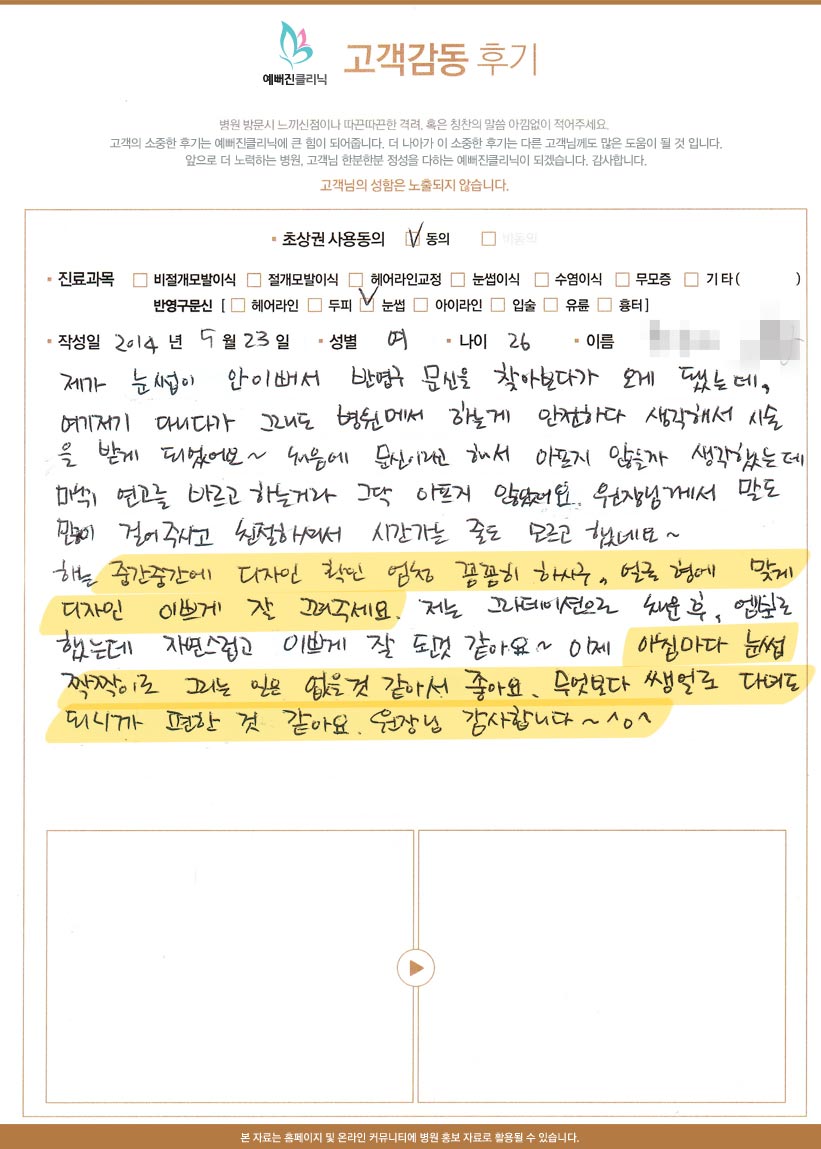 예뻐진클리닉
고객감동 후기
병원 방문시 느끼신점이나 따끈따끈한 격려, 혹은 칭찬의 말씀 아낌없이 적어주세요.
고객의 소중한 후기는 예뻐진클리닉에 큰 힘이 되어줍니다. 더 나아가 이 소중한 후기는 다른 고객님께도 많은 도움이 될 것 입니다.
앞으로 더 노력하는 병원, 고객님 한분한분 정성을 다하는 예뻐진클리닉이 되겠습니다. 감사합니다.
고객님의 성함은 노출되지 않습니다.
초상권 사용동의 동의 비동의
진료과목 비절개모발이식 절개모발이식 헤어라인교정 눈썹이식 수염이식 무모증 기 타 ( )
반영구문신 [ 헤어라인 두피 눈썹 아이라인 입술 유륜 흉터 ]
작성일 2014 년 5 월 23 일 성별 여 나이 26 이름
제가 눈썹이 안이뻐서 반영구 문신을 찾아보다가 오게 됐는데,
여기저기 다니다가 그래도 병원에서 하는게 안전하다 생각해서 시술
을 받게 되었어요~ 처음에 문신이라고 해서 아프지 않을까 생각했는데
마취 연고를 바르고 하는거라 그닥 아프지 않았어요. 원장님께서 말도
많이 걸어주시고 친절하셔서 시간가는 줄도 모르고 했네요~
하는 중간중간에 디자인 확인 엄청 꼼꼼히 하시구, 얼굴형에 맞게
디자인 이쁘게 잘 그려주세요. 저는 그라데이션으로 채운 후, 엠보로
했는데 자연스럽고 이쁘게 잘 된것 같아요~ 이제 아침마다 눈썹
짝짝이로 그리는 일은 없을것 같아서 좋아요. 무엇보다 쌩얼로 다녀도
되니까 편한 것 같아요. 원장님 감사합니다~^o^
본 자료는 홈페이지 및 온라인 커뮤니티에 병원 홍보 자료로 활용될 수 있습니다.